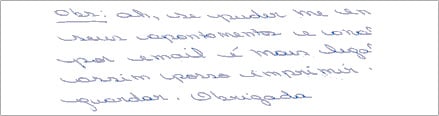 Obs: ah, se puder me en
seus apontamentos e
por email é mais
assim posso imprimir.
guardar. Obrigada